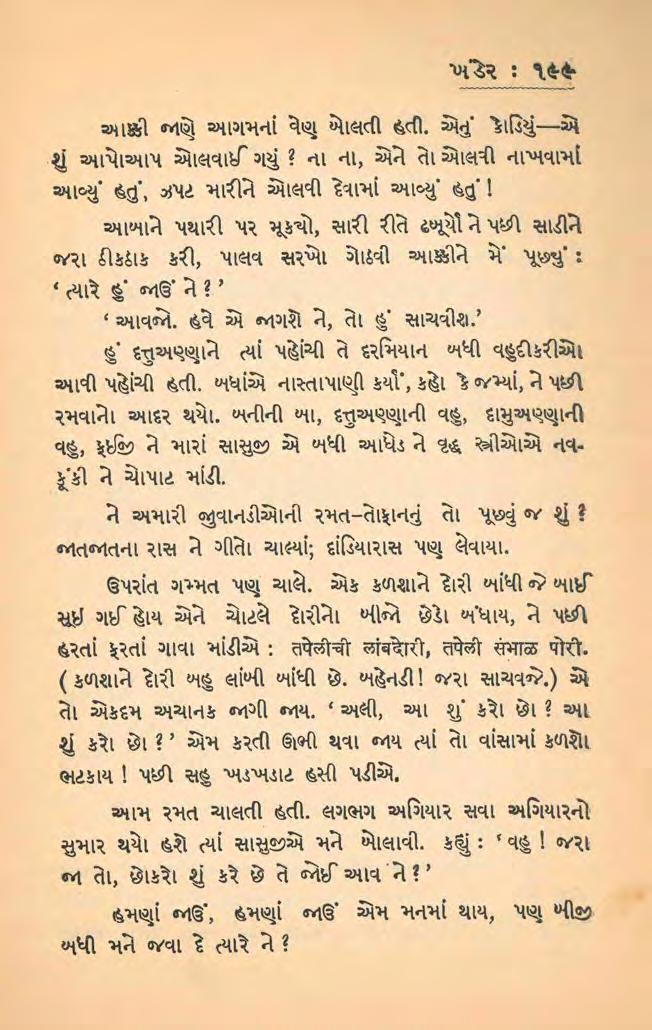 ખંડેર : ૧૯૯
આક્કી જાણે આગમનાં વેણ બોલતી હતી. એનું કોડિયું—એ
શું આપોઆપ ઓલવાઈ ગયું ? ના ના, એને તો ઓલવી નાખવામાં
આવ્યું હતું, ઝપટ મારીને ઓલવી દેવામાં આવ્યું હતું !
આબાને પથારી પર મૂક્યો, સારી રીતે ઢબૂર્યો ને પછી સાડીને
જરા ઠીકઠાક કરી, પાલવ સરખો ગોઠવી આક્કીને મેં પૂછ્યું :
‘ ત્યારે હું જાઉં ને ? ’
‘ આવજો. હવે એ જાગશે ને, તો હું સાચવીશ.’
હું દત્તુઅણ્ણાને ત્યાં પહોંચી તે દરમિયાન બધી વહુદીકરીઓ
આવી પહોંચી હતી. બધાંએ નાસ્તાપાણી કર્યાં, કહો કે જમ્યાં, ને પછી
રમવાનો આદર થયો. બનીની બા, દત્તુઅણ્ણાની વહુ, દામુઅણ્ણાની
વહુ, ફઈજી ને મારાં સાસુજી એ બધી આધેડ ને વૃદ્ધ સ્ત્રીઓએ નવ-
કૂંકી ને ચોપાટ માંડી.
ને અમારી જુવાનડીઓની રમત–તોફાનનું તો પૂછવું જ શું ?
જાતજાતના રાસ ને ગીતો ચાલ્યાં; દાંડિયારાસ પણ લેવાયા.
ઉપરાંત ગમ્મત પણ ચાલે. એક કળશાને દોરી બાંધી જે બાઈ
સૂઇ ગઈ હોય એને ચોટલે દોરીનો બીજો છેડો બંધાય, ને પછી
હરતાં ફરતાં ગાવા માંડીએ : તપેલીચી લાંબદોરી, તપેલી संભાળ પોરી.
( કળશાને દોરી બહુ લાંબી બાંધી છે. બહેનડી! જરા સાચવજે.) એ
તો એકદમ અચાનક જાગી જાય. ‘ અલી, આ શું કરો છો ? આ
શું કરો છો ? ’ એમ કરતી ઊભી થવા જાય ત્યાં તો વાંસામાં કળશો
ભટકાય ! પછી સહુ ખડખડાટ હસી પડીએ.
આમ રમત ચાલતી હતી. લગભગ અગિયાર સવા અગિયારનો
સુમાર થયો હશે ત્યાં સાસુજીએ મને બોલાવી. કહ્યું : ‘ વહુ ! જરા
જા તો, છોકરો શું કરે છે તે જોઈ આવ ને ? ’
હમણાં જાઉં, હમણાં જાઉં એમ મનમાં થાય, પણ બીજી
બધી મને જવા દે ત્યારે ને ?